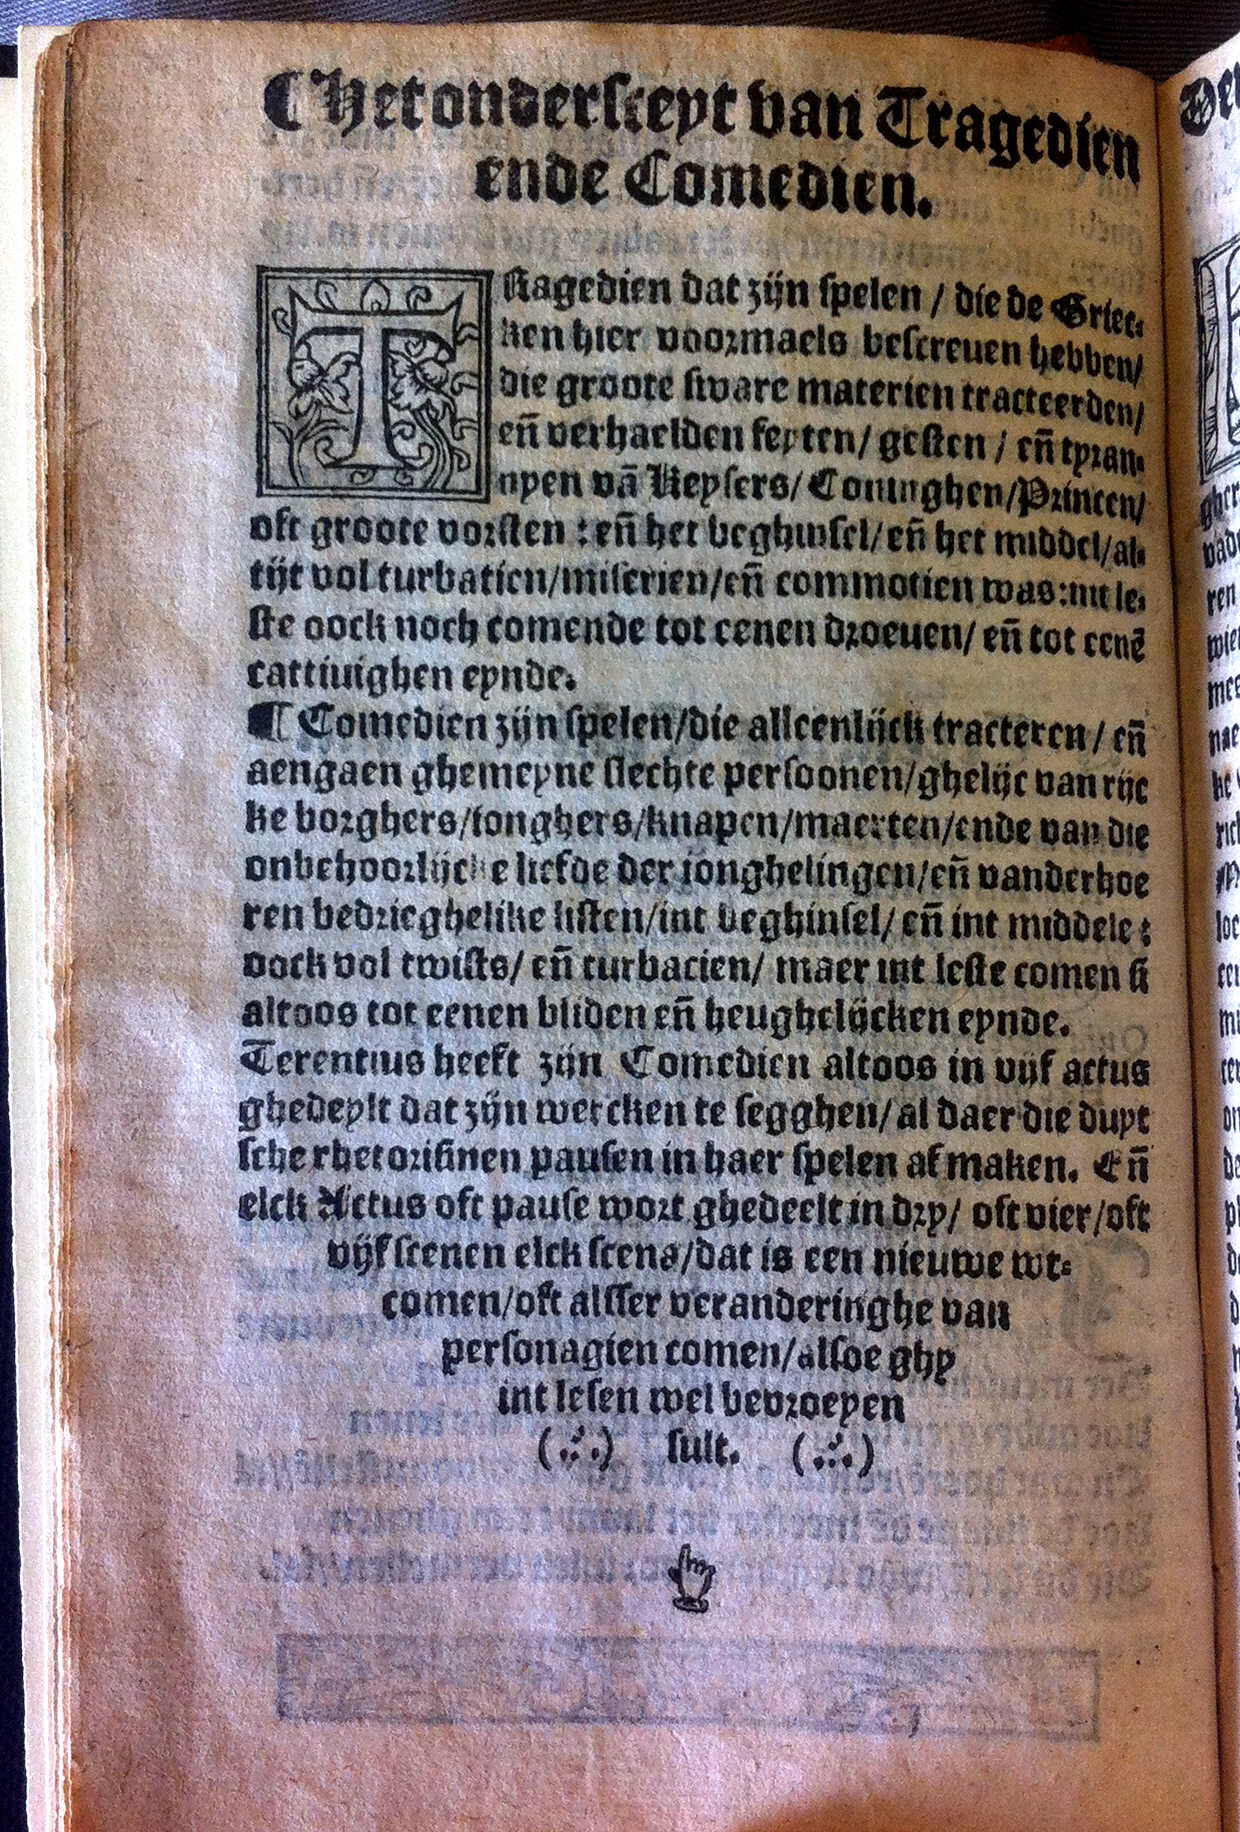 ¶ Het onderscheyt van Tragedien
ende Comedien.
TRagedien dat zijn spelen / die de Griec⸗
ken hier voormaels bescreuen hebben/
die groote sware materien tracteerden/
eñ verhaelden feyten/ gesten / eñ tyran⸗
nyen vā Keysers/ Coninghen/Princen/
oft groote vorsten : eñ het beghinsel/ eñ het middel/al⸗
tijt vol turbatien/miserien/eñ commotien was:int le⸗
ste oock noch comende tot eenen droeuen/ eñ tot eenē
cattiuighen eynde.
¶ Comedien zijn spelen/die alleenlijck tracteren / eñ
aengaen ghemeyne slechte persoonen/ghelijc van rijc
ke borghers/ionghers/knapen/maerten/ende van die
onbehoorlijcke liefde der ionghelingen/eñ vanderhoe
ren bedrieghelike listen/int beghinsel/ eñ int middele :
oock vol twists/ eñ turbacien/ maer int leste comen si
altoos tot eenen bliden eñ heughelijcken eynde.
Terentius heeft zijn Comedien altoos in vijf actus
ghedeylt dat zijn wercken te segghen/ al daer die duyt
sche rhetorisinen pausen in haer spelen af maken. Eñ
elck Actus oft pause wort ghedeelt in dry/ oft vier /oft
vijf scenen elck scena/dat is een nieuwe wt⸗
comen/oft alsser veranderinghe van
personagien comen/alsoe ghy
int lesen wel bevroeyen
(.·.) sult. (.·.)